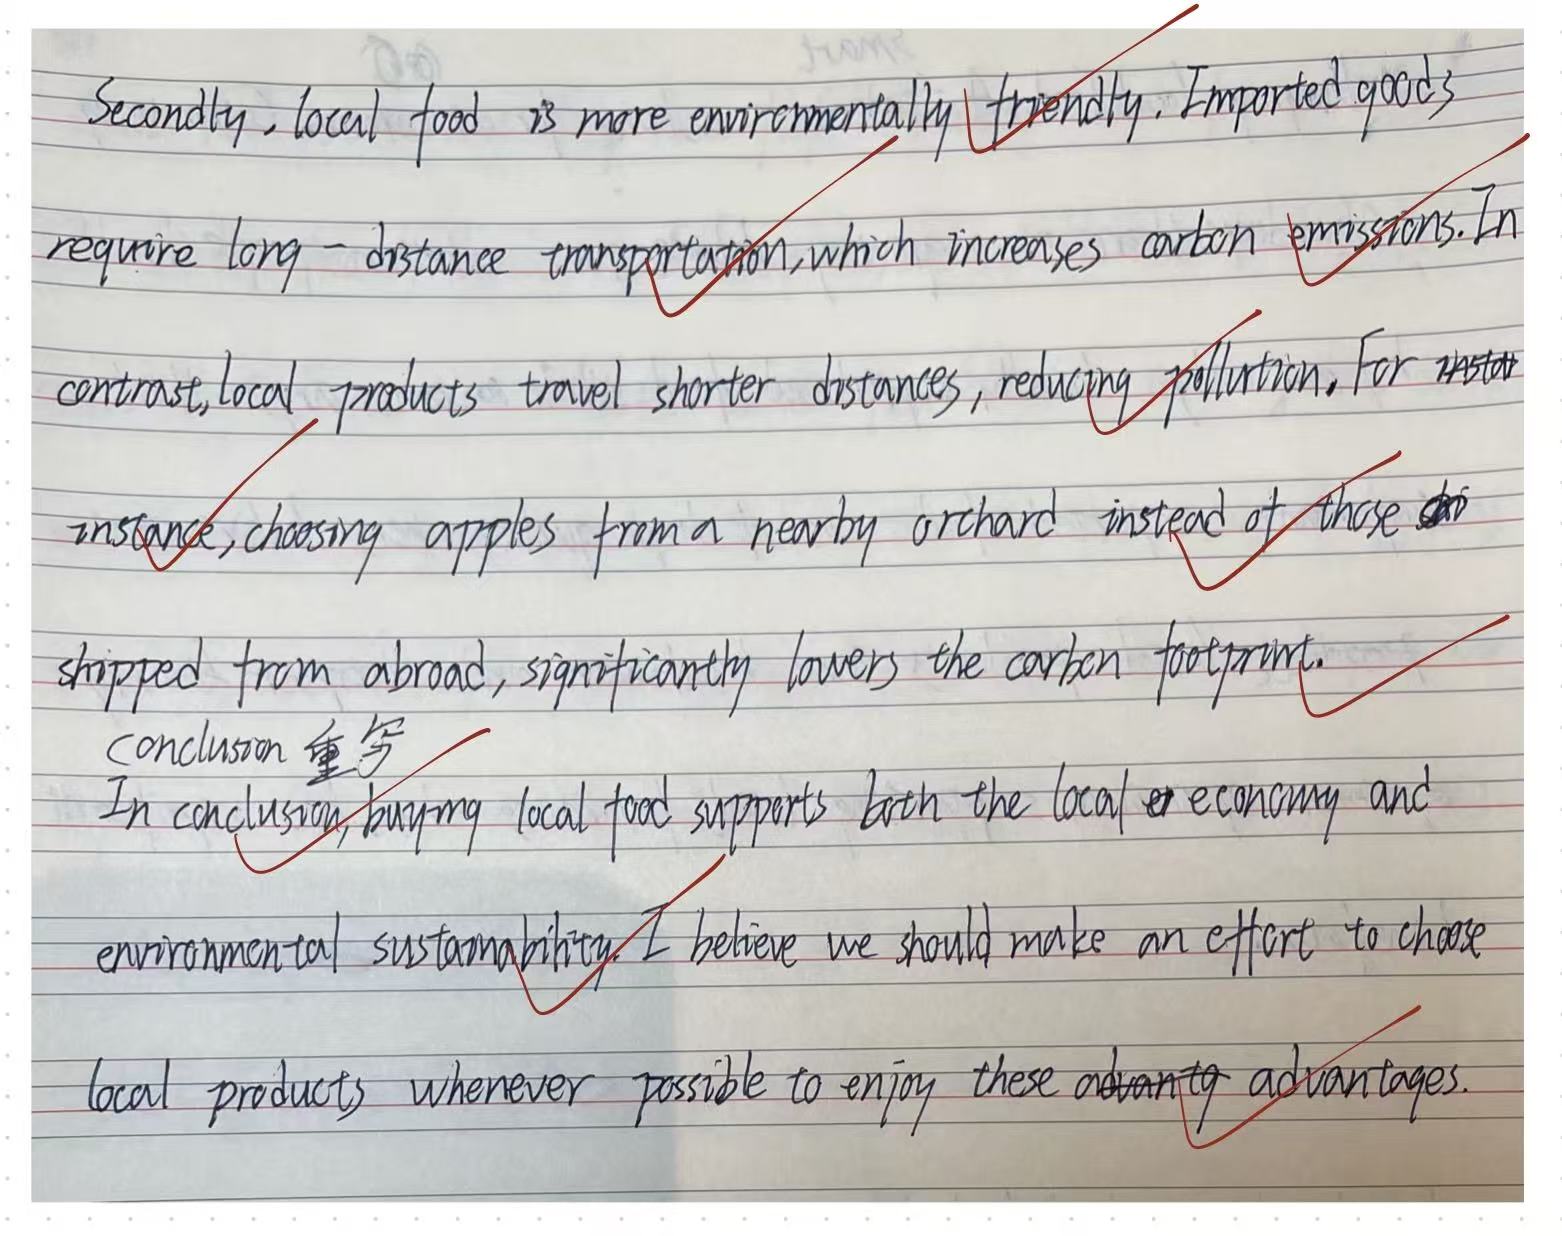 Secondly, local food is more environmentally friendly. Imported goods
require long-distance transportation, which increases carbon emissions. In
contrast, local products travel shorter distances, reducing pollurtion. For
instance, choosing apples from a nearby orchard instead of those
shipped from abroad, significantly lowers the carbon footprint.
Conclusion 重写
In conclusion, buying local food supports both the local economy and
environmental sustainability. I believe we should make an effort to choose
local products whenever possible to enjoy these advantages.